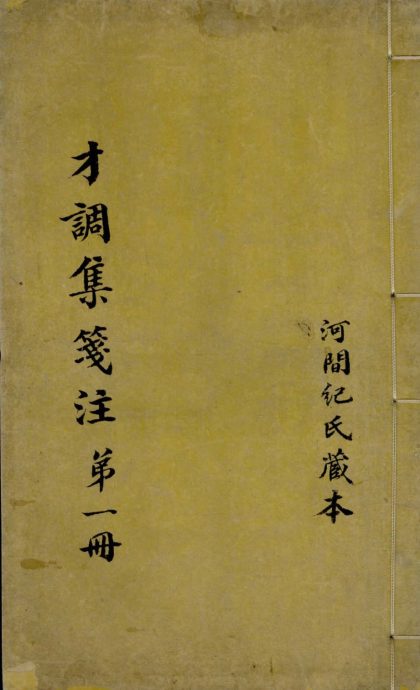 河間紀氏藏本
才調集箋注 第一冊